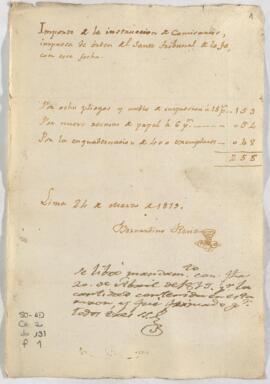 1
Importe de la instruccion de Comisarios,
impresa de orden del Santo Tribunal de la Fe,
con esta fecha.
Por ocho pliegos y medio de impresion á 18 p. 153
Por nueve resmas de papel á 6 p. 054
Por la enquadernacion de 400 exemplares 048
255
Lima 24 de marzo de 1819.
Bernardino Ruiz
Se libró mandam.to con fha
20. de Abril de 819. p.r la
cantidad contenida en esta
razon, y q.e
SO-
Co. 2
191
f 1